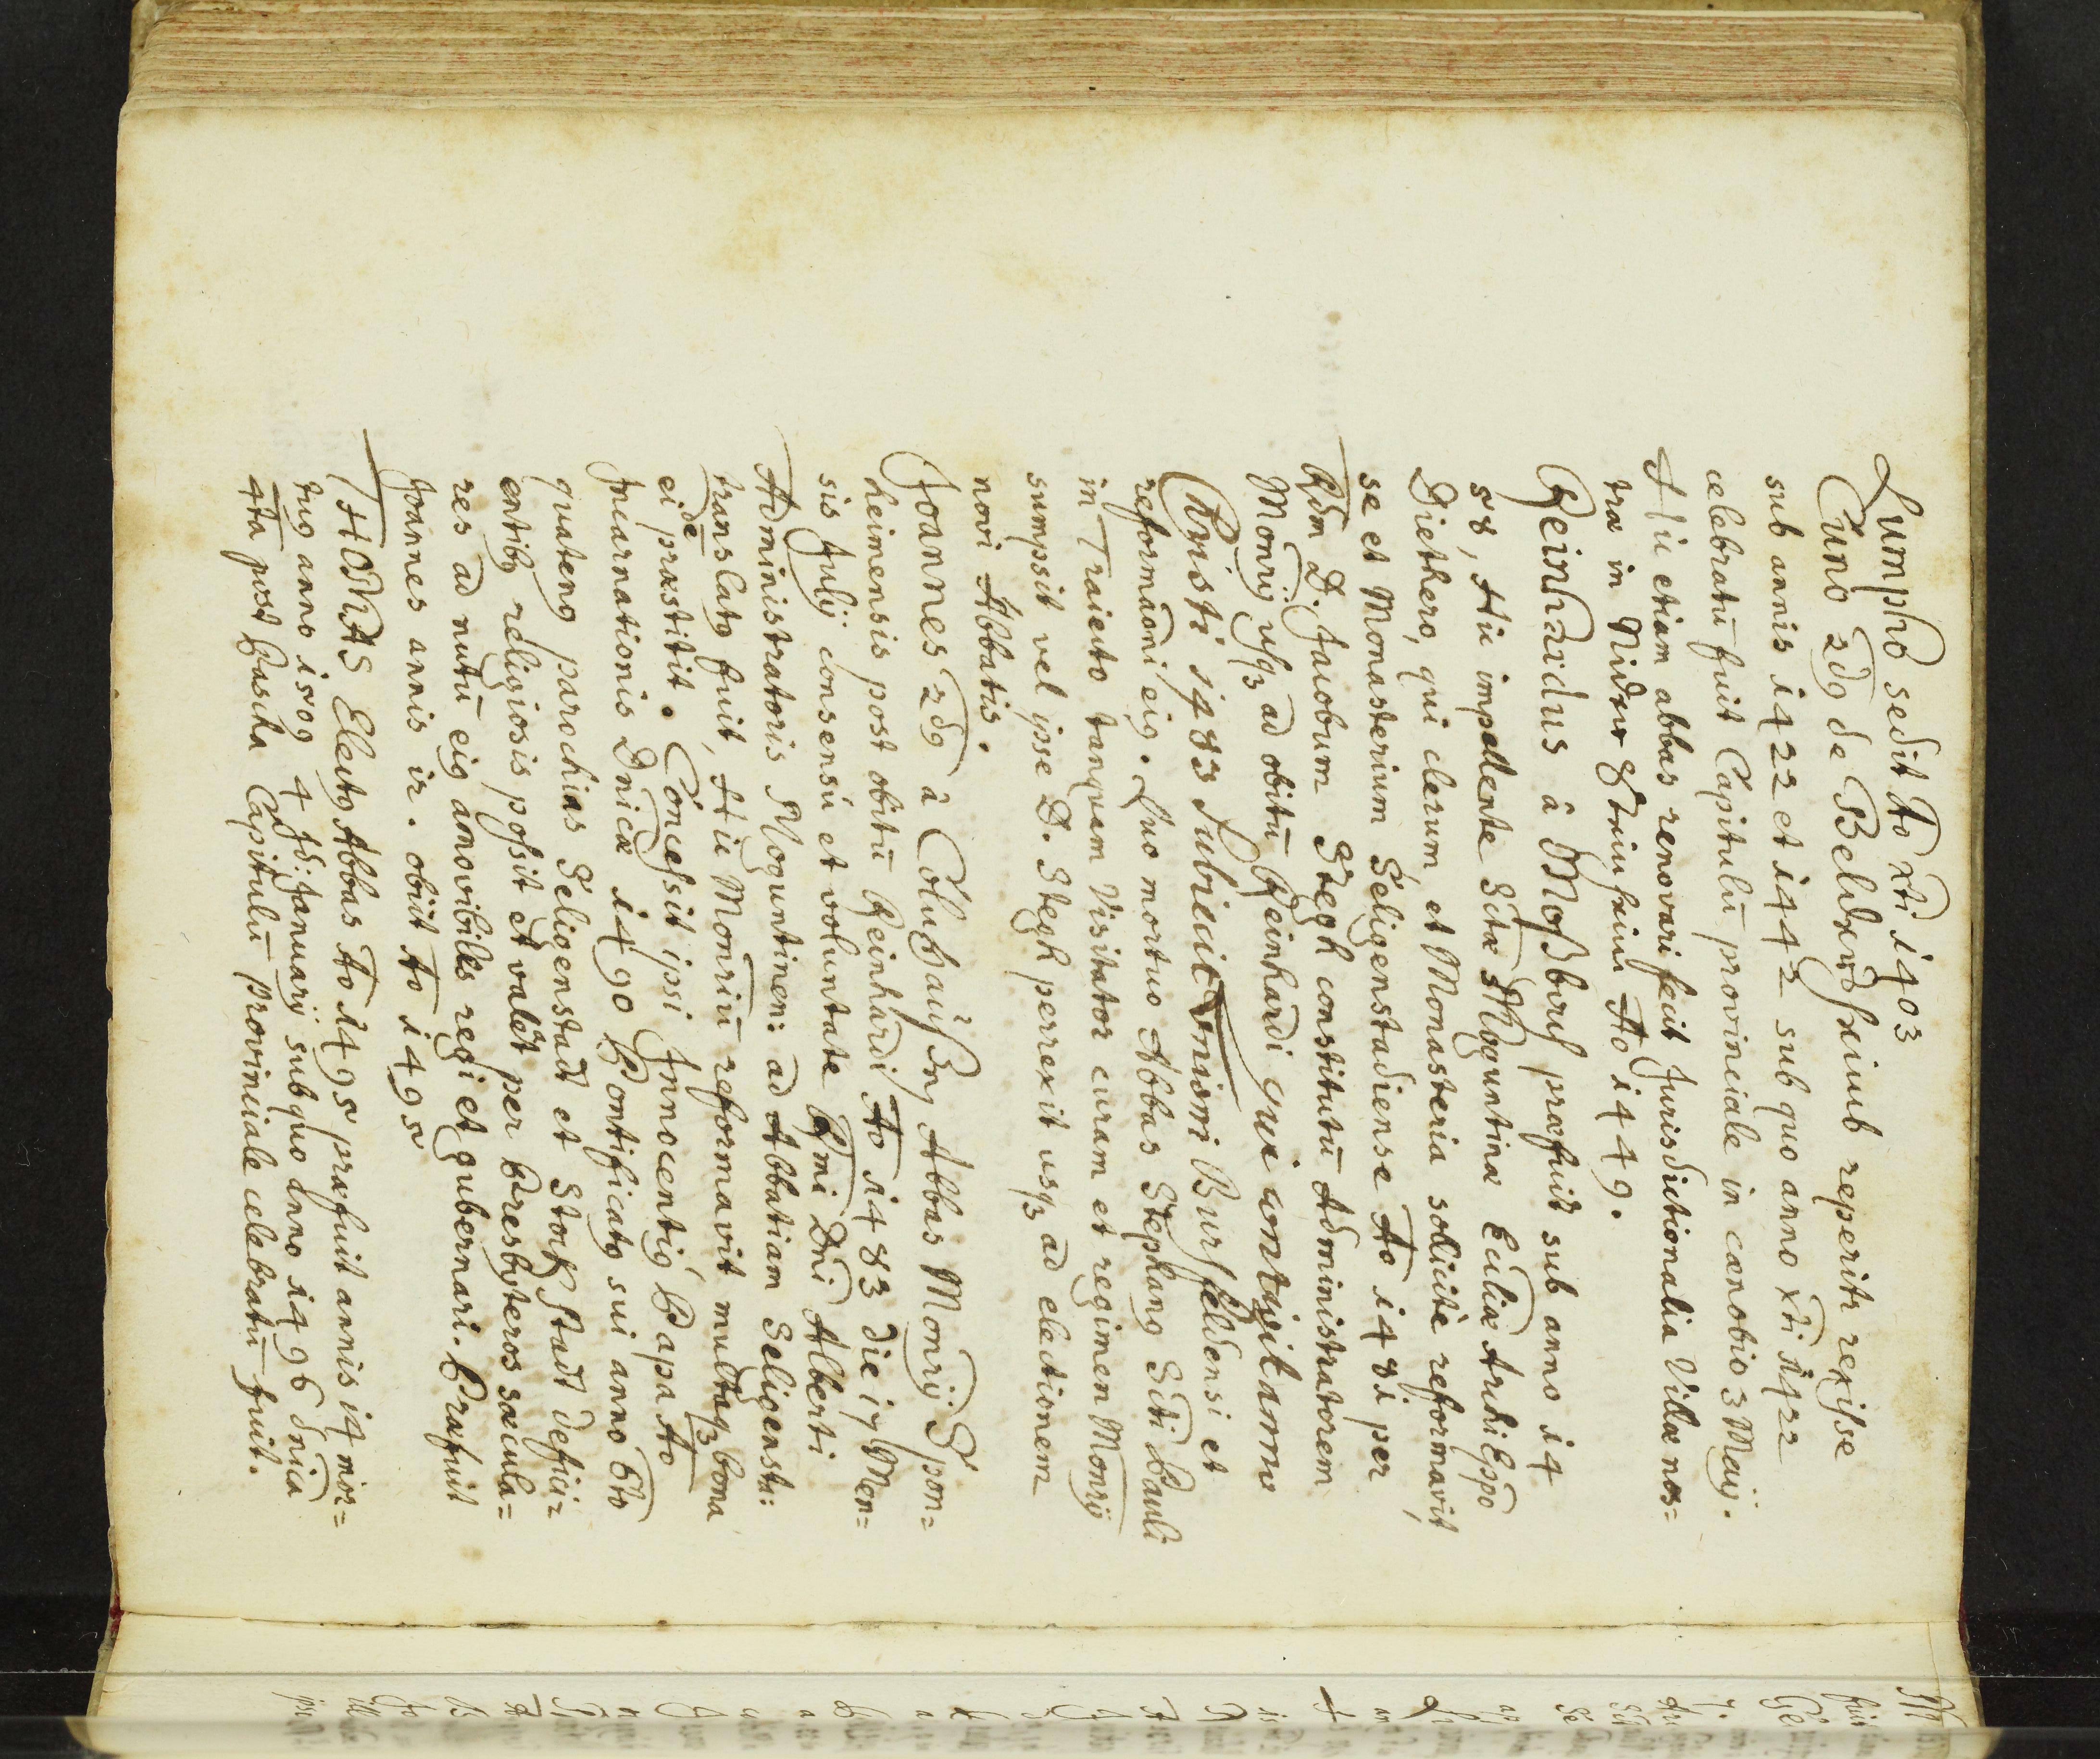 Lumpho sedit Ao xti 1403
Cuno 2dg de Beldersheimb reperitr rexisse
sub annis 1422 et 1442 sub quo anno xti 1422
celebratū fuit Capitulū provinciale in cœnobio 3 Maij.
Hic etiam abbas renovari fecit Jurisdictionalia Villæ nos=
træ in Nider Ao 1449.
Reinhardus à Moßbach præfuit sub anno 14
58, Hic impellente Sctæ Moguntinæ Ecclīæ ArchiEppo
Diethero, qui clerum, et Monasteria sollicitè reformavit,
se et Monasterium Seligenstadiense Ao 1481 per
Rdm D. Jacobum Stegh constitutū Administratorem
Monrij usq3 ad obitū Reinhardi qui contigit anno
Christi 1483 subiecit Bursfeldensi et
reformaōni eig. Quo mortuo Abbas Stephang Scti Pauli
in Traiecto tanquam Visitator curam et regimen Monrij
sumpsit vel ipse D. Stegh perrexit usq3 ad electionem
novi Abbatis.
Joannes 2dg à Colnhausen Abbas Monrij Spon=
heimensis post obitū Reinhardi Ao 1483 die 17 Men=
sis Julij consensu et voluntate Rmi Dni Alberti
Administratoris Moguntinen: ad Abbatiam Seligenst:
translatg fuit, Hic Monriū reformavit multaq3 bona
ei præstitit. Concessit ipsi Innocentig Papa Ao
de
Incarnationis Dnicæ 1490 Pontificatg sui anno 6to
quateng parochias Seligenstadt et Stockstadt defici=
entibg religiosis possit et valet per Presbyteros sæcula=
res ad nutū eig amovibiles regi et gubernari. Præfuit
Joannes annis 12. obiit Ao 1495
THOMAS Electg Abbas Ao 1495 præfuit annis 14 mor=
tug anno 1509 4 Id: Januarij sub quo anno 1496 dnica
4ta post Pascha Capitulū provinciale celebratū fuit.